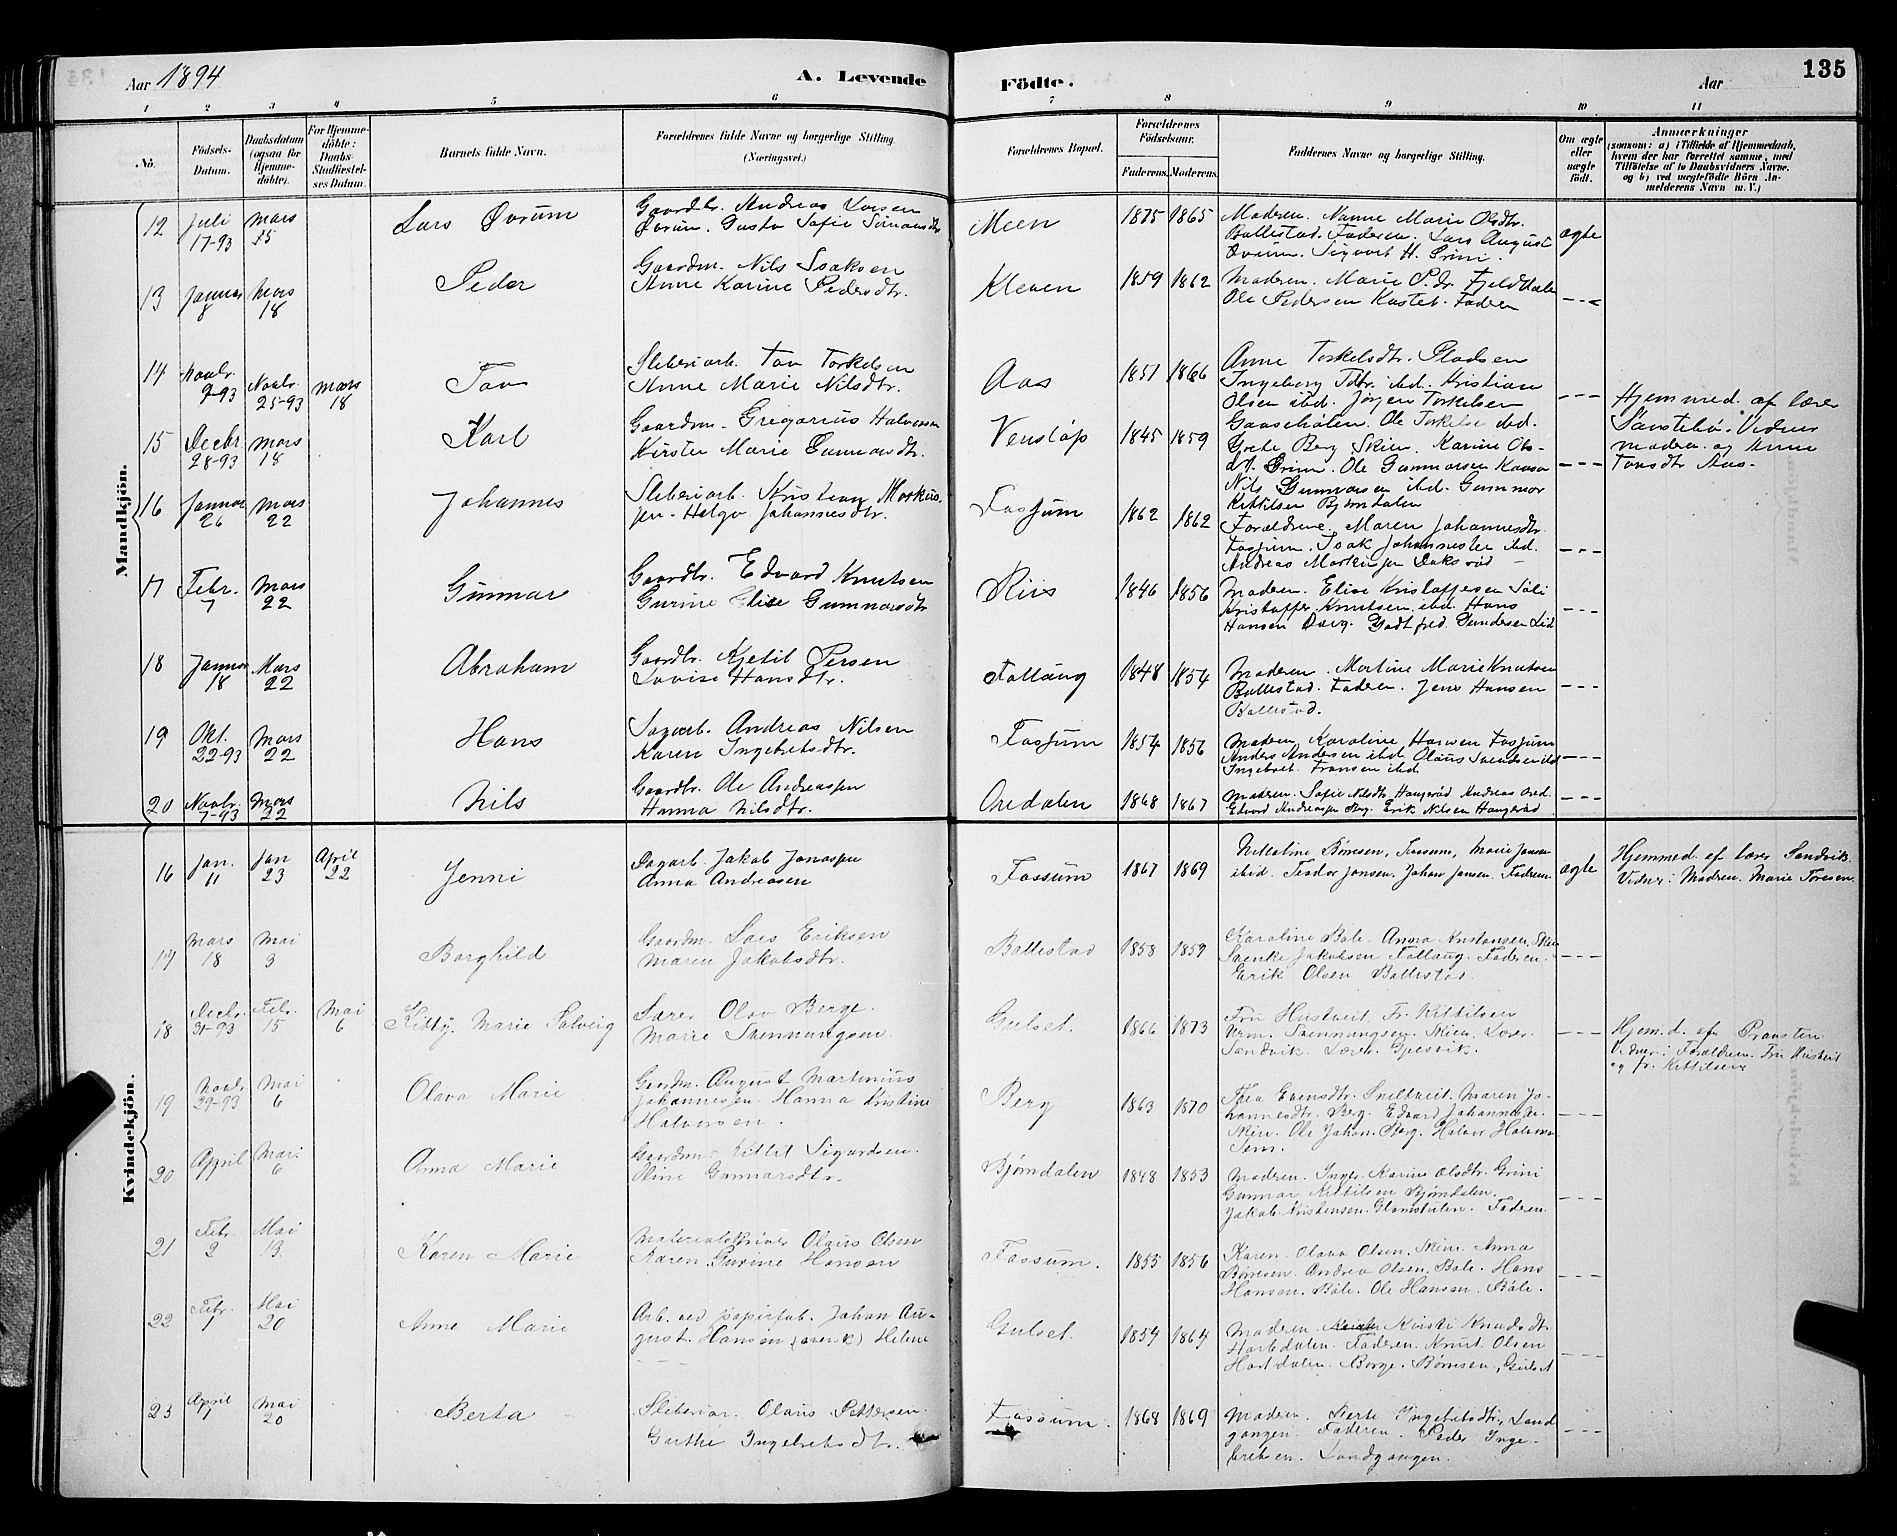 Aar 1894
A. Levende
Födte.
Aar
135
1 2 3 4 5 6 7 8 9 10 11
No.
Födsels-Datum.
Daabsdatum (ogsaa for Hjemmedöbte).
For Hjemmedöbte: Daabs-Stadfæstelses Datum.
Barnets fulde Navn.
Forældrenes fulde Navne og borgerlige Stilling (Næringsvei.)
Forældrenes Bopæl.
Forældrenes Födselsaar.
Faderens. Moderens.
Faddernes Navne og borgerlige Stilling.
Om ægte eller uægte födt.
Anmærkninger
(saasom: a) i Tilfælde af Hjemmedaab, hvem der har forrettet samme, med Tilföielse af to Daabsvidners Navne. og b) ved uægtefödte Börn Anmelderens Navn m. V.)
Mandkjön.
12 Juli 17-93 Mars 15 Lars Övrum
Gaardbr. Andreas Larsen
Övrum. Gusta Sofie Simonsdtr
Meen 1875 1865
Moderen. Nanne Marie Olsdtr.
Ballestad. Faderen. Lars August
Övrum. Sigvart H. Grini.
ægte
13 Januar 8 Mars 18 Peder
Gaardm. Nils Isaksen
Anne Karine Pedersdtr.
Kleven 1859 1862
Moderen. Marie P.dr. Fjelddalen
Ole Pedersen Kastet. Faderen
14 Novbr. 9-93 Novbr. 25-93 Mars 18 Tov
Sliberiarb. Tov Torkelsen
Anne Marie Nilsdtr.
Aas 1857 1866
Anne Torkelsdtr. Pladsen
Ingeborg Tdtr. ibd. Kristian
Olsen ibd. Jörgen Torkelsen
Gaasehölen. Ole Torkelse ibd.
Hjemmed. af lærer
Vidner
moderen og Anne
Tovsdtr Aas.
15 Decbr. 28-93 Mars 18 Karl
Gaardm. Gregorius Halvorsen
Kirsten Marie Gunnarsdtr.
Venstöp 1845 1859
Grete Berg Skien. Karine Ols-
dt. Grini. Ole Gunnarsen
Nils Gunnarsen ibd. Gunnar
Kittilsen Björndalen
16 Januar 26 Mars 22 Johannes
Sliberiarb. Kristian Markus-
sen. Helga Johannesdtr.
Fossum 1862 1862
Forældrene. Maren Johannesdtr.
Fossum. Isak Johannesen ibd.
Andreas Markussen
17 Febr. 7 Mars 22 Gunnar
Gaardbr. Edvard Knutsen
Gurine Elise Gunnarsdtr
Riis 1846 1856
Moderen. Elise Kristoffersen
Kristoffer Knutsen ibd. Hans
Hansen. Godtfred Gundersen Lid
18 Januar 18 Mars 22 Abraham
Gaardbr. Kjetil Persen
Lovise Hansdtr.
Follaug 1848 1854
Moderen. Martine Marie Knutsen
Ballestad. Faderen. Jens Hansen
Ballestad.
19 Okt. 22-93 Mars 22 Hans
Sagarb. Andreas Nilsen
Karen Ingebretsdtr.
Fossum 1854 1856
Moderen Karoline Hansen Fossum
Anders Andersen ibd. Olaus Svendsen ibd
Ingebret Fransen ibd.
20 Novbr. 7-93 Mars 22 Nils
Gaardbr. Ole Andreassen
Hanna Nilsdtr.
Oredalen 1868 1867
Moderen. Sofie Nilsdtr. Haugerød Andreas Ored.
Edvard Andreassen Berg. Erik Nilsen Haugerød
Kvindekjön.
16 Jan. 11 Jan 23 April 22 Jenni
Sagarb. Jakob Jonassen
Anna Andreasen
Fossum 1867 1869
Nikoline Börresen, Fossum, Marie Jansen
ibid. Teodor Jonsen. Johan Jansen. Faderen
ægte
Hjemmed. af lærer Sandvik.
Vidner: Modren. Marie Toresen.
17 Mars 18 Mai 3 Borghild
Gaardm. Lars Eriksen
Maren Jakobsdtr.
Ballestad 1858 1859
Karoline Bole. Anna Kristansen, Skien
Svenke Jakobsen Follaug. Faderen.
Erik Olsen Ballestad.
18 Decbr. 31-93 Febr. 15 Mai 6 Kitty Marie Solveig
Lærer Olav Berge.
Marie Svennungsen.
Gulset. 1866 1873
Fru Hustveit Fr. Kittilsen
Svennungsen. Skien. Lærer
Sandvik. Lærer.
Hjem. d. af Provsten
Vidner: Forældrene. Fru Hustveit
og fr. Kittilsen
19 Novbr 29-93 Mai 6 Olava Marie
Gaardm. August Martinius
Johannessen. Hanna Kristine
Halvorsen.
Berg 1863 1870
Thea Evensdtr. Sneltveit. Maren Jo-
hannesdtr. Berg. Edvard Johannesen.
Skien. Ole Johan. Berg. Halvor Halvor-
sen.
20 April Mai 6 Anna Marie
Gaardm. Kittil Sigurdsen.
Stine Gunnarsdtr.
Björndalen 1848 1853
Modren. Inger Karine Olsdtr. Grini
Gunnar Kittilsen Björndalen.
Jakob Kristensen. Faderen.
21 Febr. 2 Mai 13 Karen Marie
Materialskriver Olaus Olsen
Karen Gurine Hansen
Fossum. 1855 1856
Karen Olava Olsen. Skien. Anna
Börresen. Andrea Olsen, Bole. Hans
Hansen. Bole. Ole Hansen. Bole.
22 Febr. 1 Mai 20 Anne Marie
Arb. ved papirfab. Johan Au-
gust Hansen (svensk) Helene
Gulset. 1854 1864
Modren. Kirsti Knudsdtr
Hortedalen. Faderen. Knut Olsen
Hortedalen. Borge. Börresen, Gulset
23 April 1 Mai 20 Berta
Sliberiar. Olaus Pettersen.
Gurthe Ingebretsdtr.
Fossum. 1868 1869
Modren. Berte Ingebretsdtr. Land-
gangen. Faderen. Peder Inge-
bretsen. Landgangen.